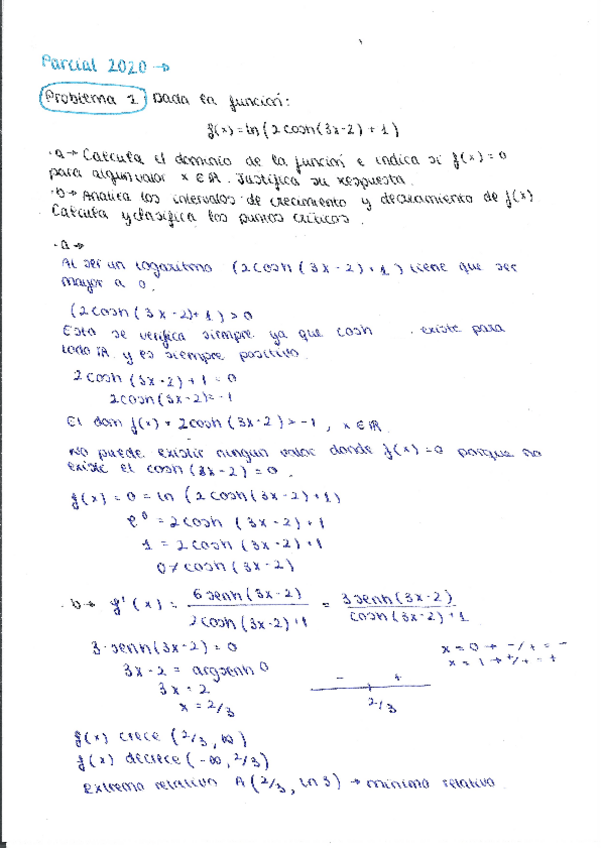 Parcial 2020 →
Problema 1 Dada la función:
f(x) = ln(2cosh(3x-2)+1)
·a→ Calcula el dominio de la función e indica si f(x)=0
para algun valor x ∈ ℝ. Justifica su respuesta.
·b→ Analiza los intervalos de crecimiento y decrecimiento de f(x)
Calcula y clasifica los puntos críticos.
·a→
Al ser un logaritmo (2cosh(3x-2)+1) tiene que ser
mayor a 0.
(2cosh(3x-2)+1) > 0
Esto se verifica siempre ya que cosh existe para
todo ℝ y es siempre positivo.
2cosh(3x-2)+1 = 0
2cosh(3x-2) = -1
El dom f(x) = 2cosh(3x-2) > -1, x ∈ ℝ
No puede existir ningun valor donde f(x)=0 porque no
existe el cosh(3x-2) = 0.
f(x) = 0 = ln(2cosh(3x-2)+1)
e⁰ = 2cosh(3x-2)+1
1 = 2cosh(3x-2)+1
0 ≠ cosh(3x-2)
·b→ f'(x) = 6senh(3x-2) / 2cosh(3x-2)+1 = 3senh(3x-2) / cosh(3x-2)+1
3·senh(3x-2) = 0
x=0 → -/+ = -
x=1 → +/+ = +
3x-2 = argsenh 0
- +
3x = 2
x = 2/3
2/3
f(x) crece (2/3, ∞)
f(x) decrece (-∞, 2/3)
Extremo relativo A(2/3, ln 3) → mínimo relativo